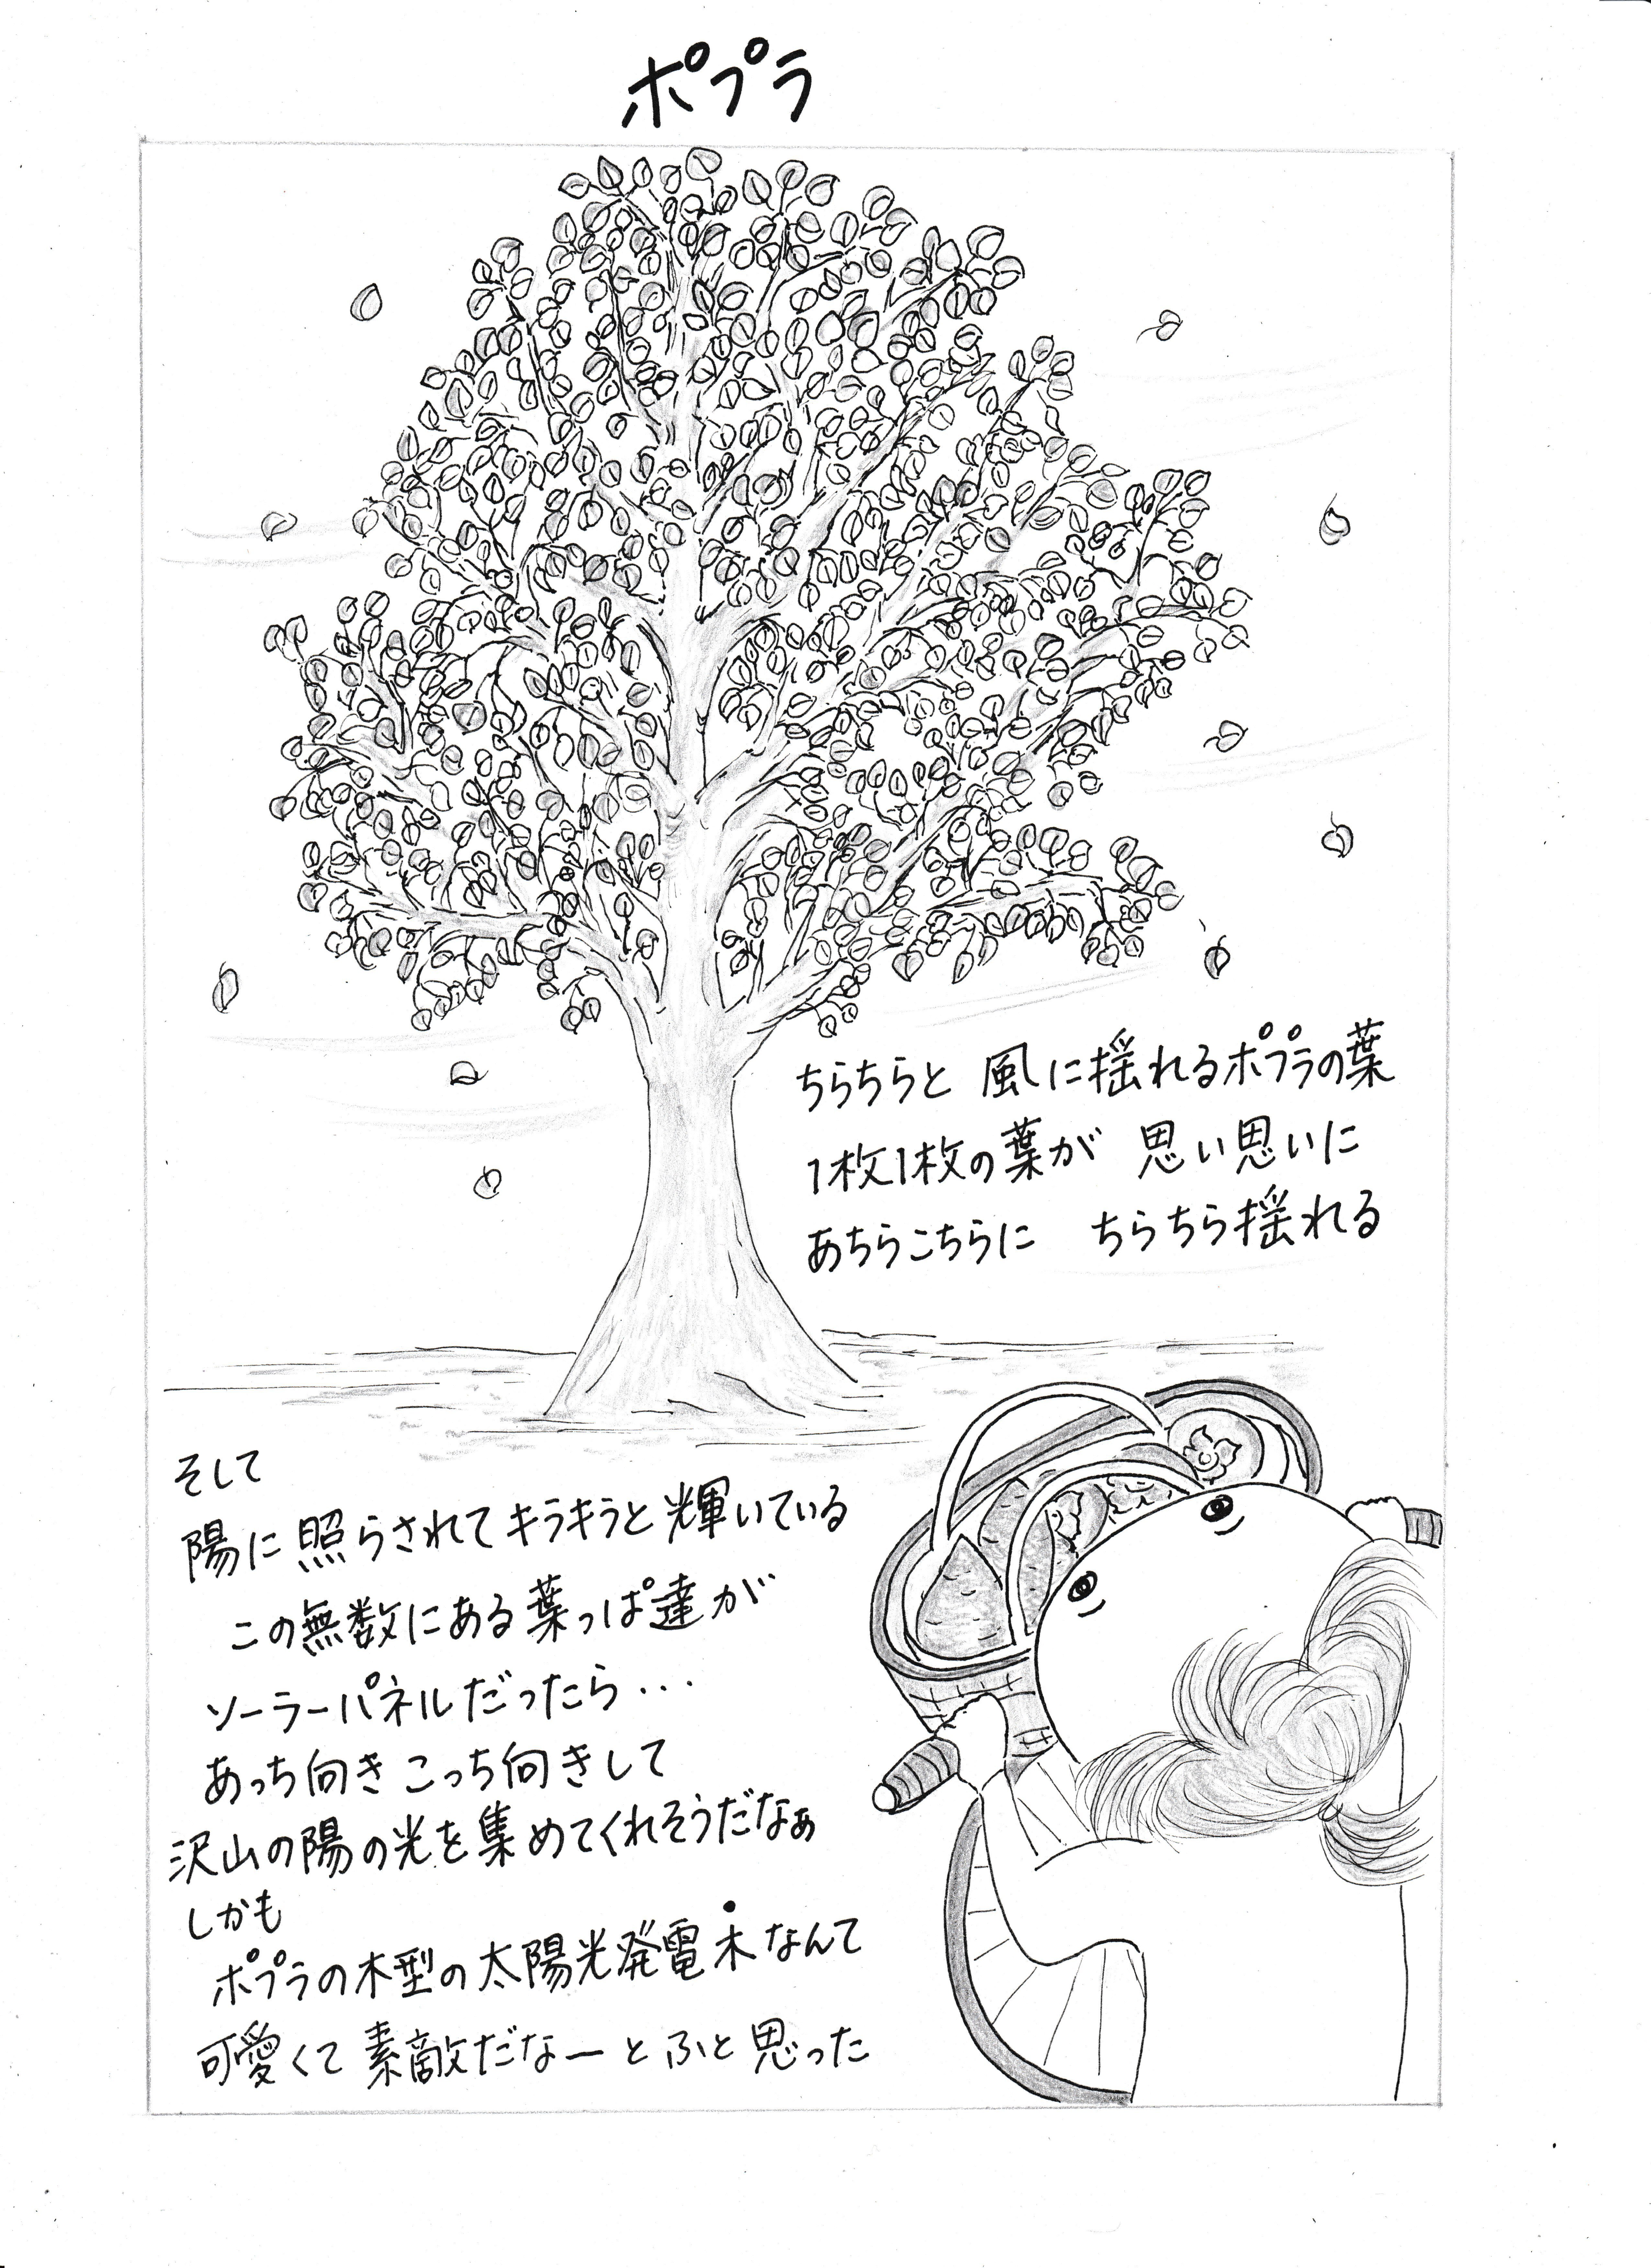 ポプラ
ちらちらと 風に揺れるポプラの葉
1枚1枚の葉が 思い思いに
あちらこちらに ちらちら揺れる
そして
陽に照らされてキラキラと輝いている
この無数にある葉っぱ達が
ソーラーパネルだったら...
あっち向きこっち向きして
沢山の陽の光を集めてくれそうだなぁ
しかも
ポプラの木型の太陽光発電木なんて
可愛くて素敵だなーとふと思った